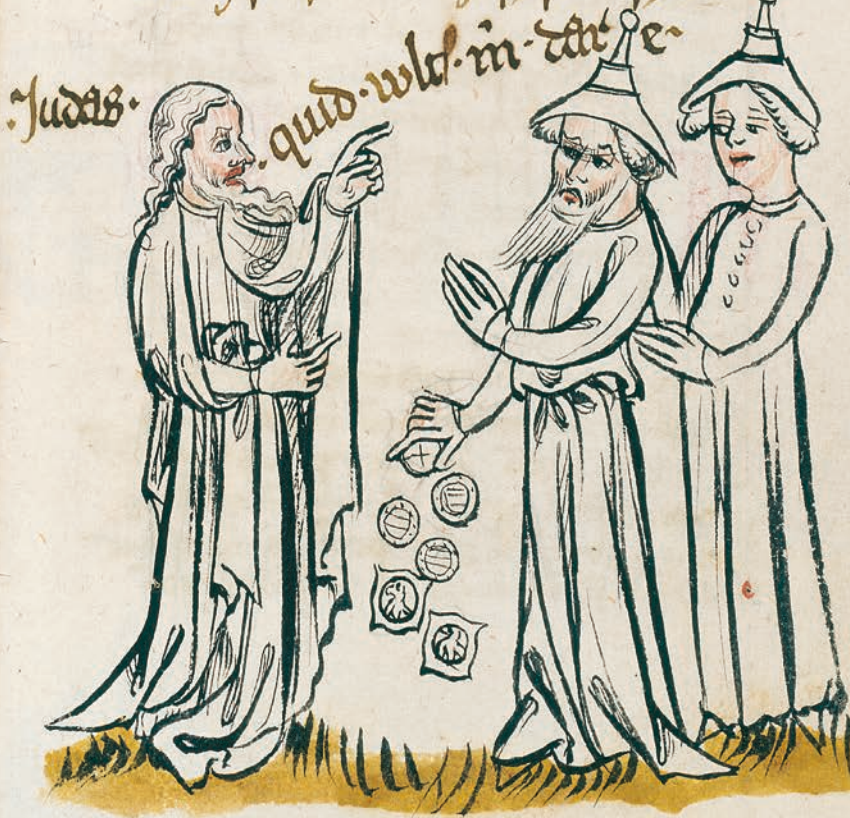 ·Judas·
·quid·wltꝭ·m̄·dar̄e·